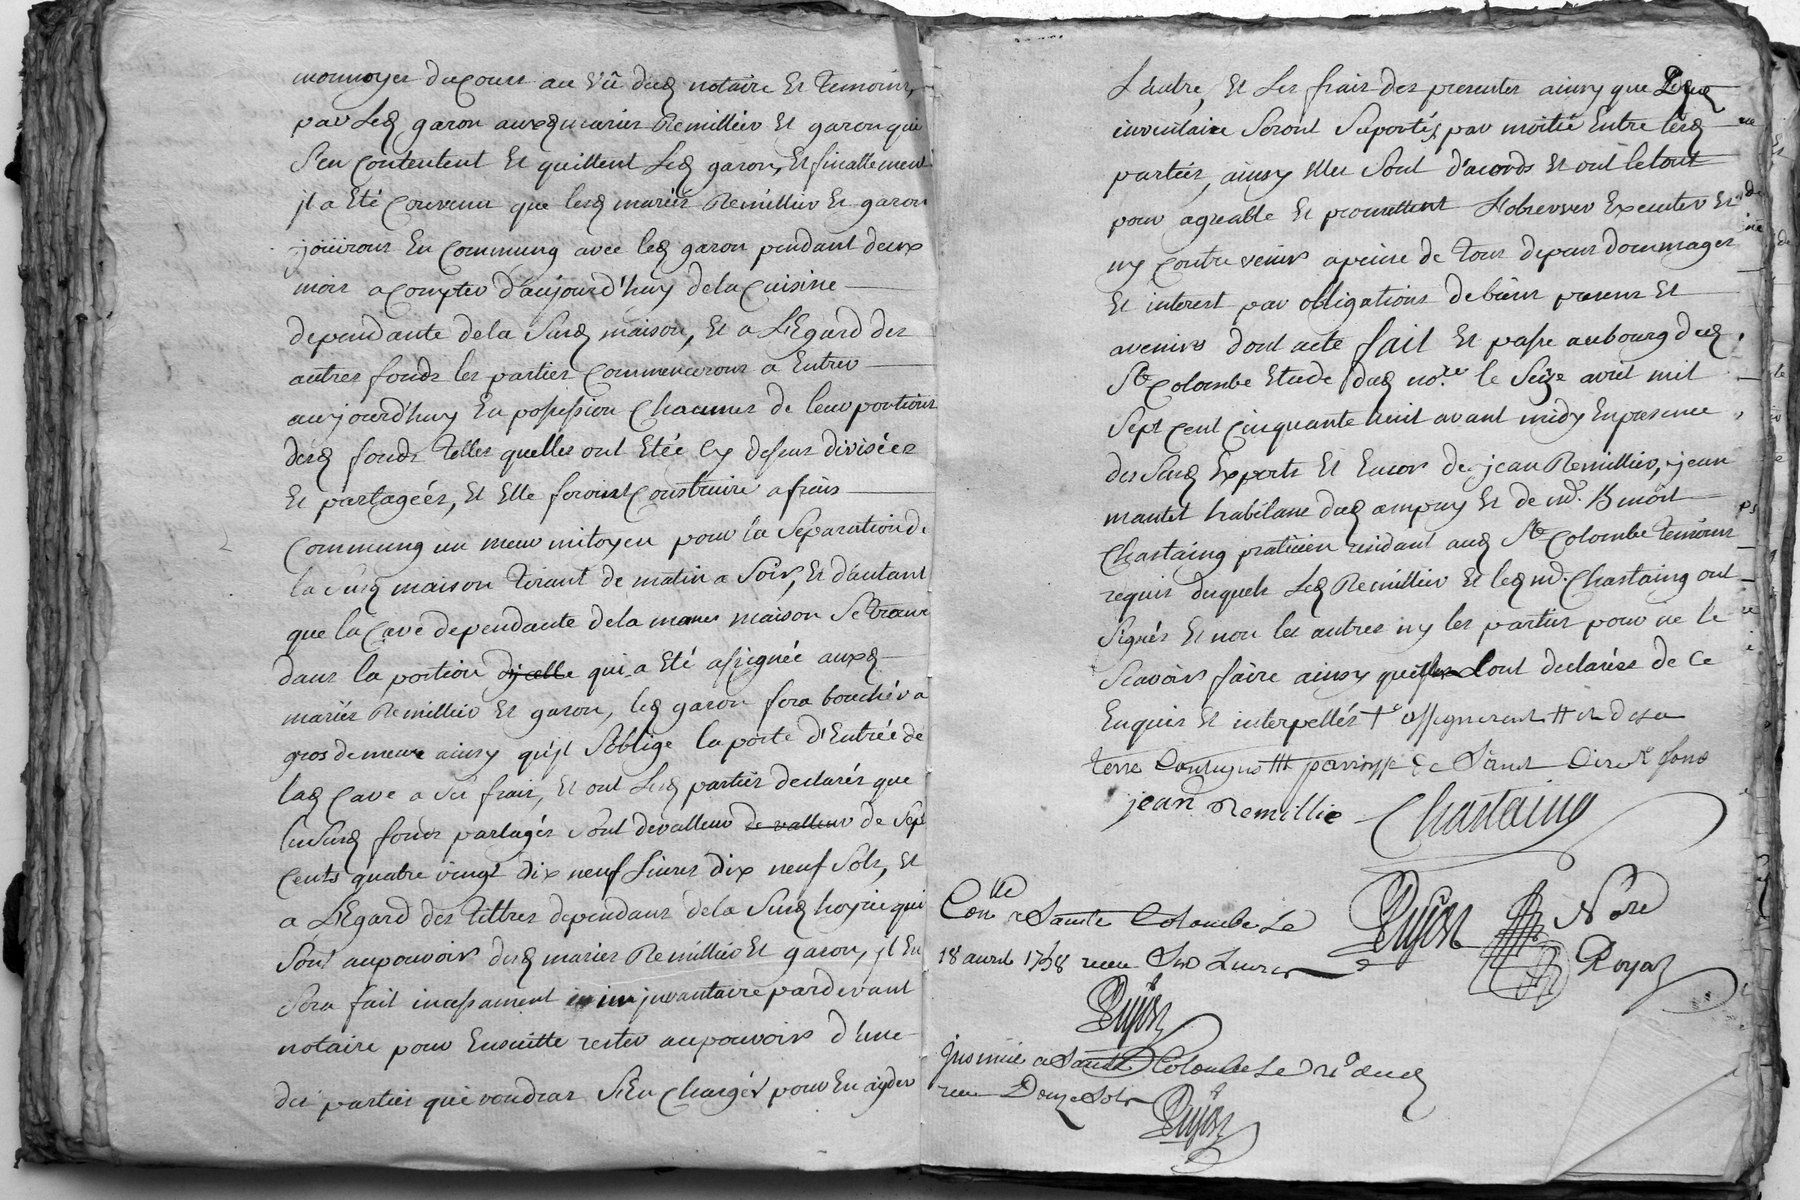 monnoyes du cours au vû dud notaire et temoins,
par led garon auxd mariés Remillier et garon qui
s'en contentent et quittent led garon, et finallement
jl a eté convenu que lesd mariés Remillier et garon
joüirons en commung avec led garon pendant deux
mois a compter d'aujourd'huy de la cuisine
dependante de la susd maison, et a l'Egard des
autres fonds les parties commencerons a entrer
aujourd'huy en possession chacunes de leur portions
desd fonds telles quelles ont etée cy dessus divisées
et partagées, et elle feront construire a frais
commung un meur mitoyen pour la separation de
la susd maison tirant de matin a soir, et d'autant
que la cave dependante de la meme maison se trouve
dans la portion dicelle qui a eté assignée auxd
mariés Remillier et garon, led garon fera boucher a
gros de meure ainsy qu'jl s'oblige la porte d'Entrée de
lad cave a ses frais, et ont lesd parties declarés que
lesusd fonds partagés sont de valleur de valleur de sept
cents quatre vingt dix neuf livres dix neuf sols, et
a l'Egard des tittres dependans de la susd hoyrie qui
sont au pouvoir desd mariés Remillier et garon, jl en
sera fait incessament un juvantaire pardevant
notaire pour ensuitte rester au pouvoir d'une
des parties qui voudras s'en charger pour en ayder
L'autre, et les frais des presentes ainsy que
inventaire seront suportés par moitié entre lesd
parties, ainsy elles sont d'acords et ont le tout
pour agreable et promettent l'observer executer et
ny contrevenir a peine de tous depens dommages
et interest par obligations de biens presens et
avenirs dont acte fait et passé au bourg dud
Ste Colombe etude dud nore le seize avril mil
sept cent cinquante huit avant midy en presence
des susd experts et encor de jean Remillier, jean
mantet habitans dud ampuy et de md. Benoit
Chastaing praticien residant aud Ste Colombe temoins
requis desquels led Remillier et led md. Chastaing ont
signés et non les autres ny les parties pour ne le
scavoir faire ainsy quils l'ont declarés de ce
enquis et interpellés
terre
jean Remillie Chastaing
Conlle a Sainte Colombe le Dujon Nore
18 avril 1758 receu Six Livres Royal
Dujon
Jnsinué a Sainte Colombe le d. jo aud
receu Douze Sols
Dujon